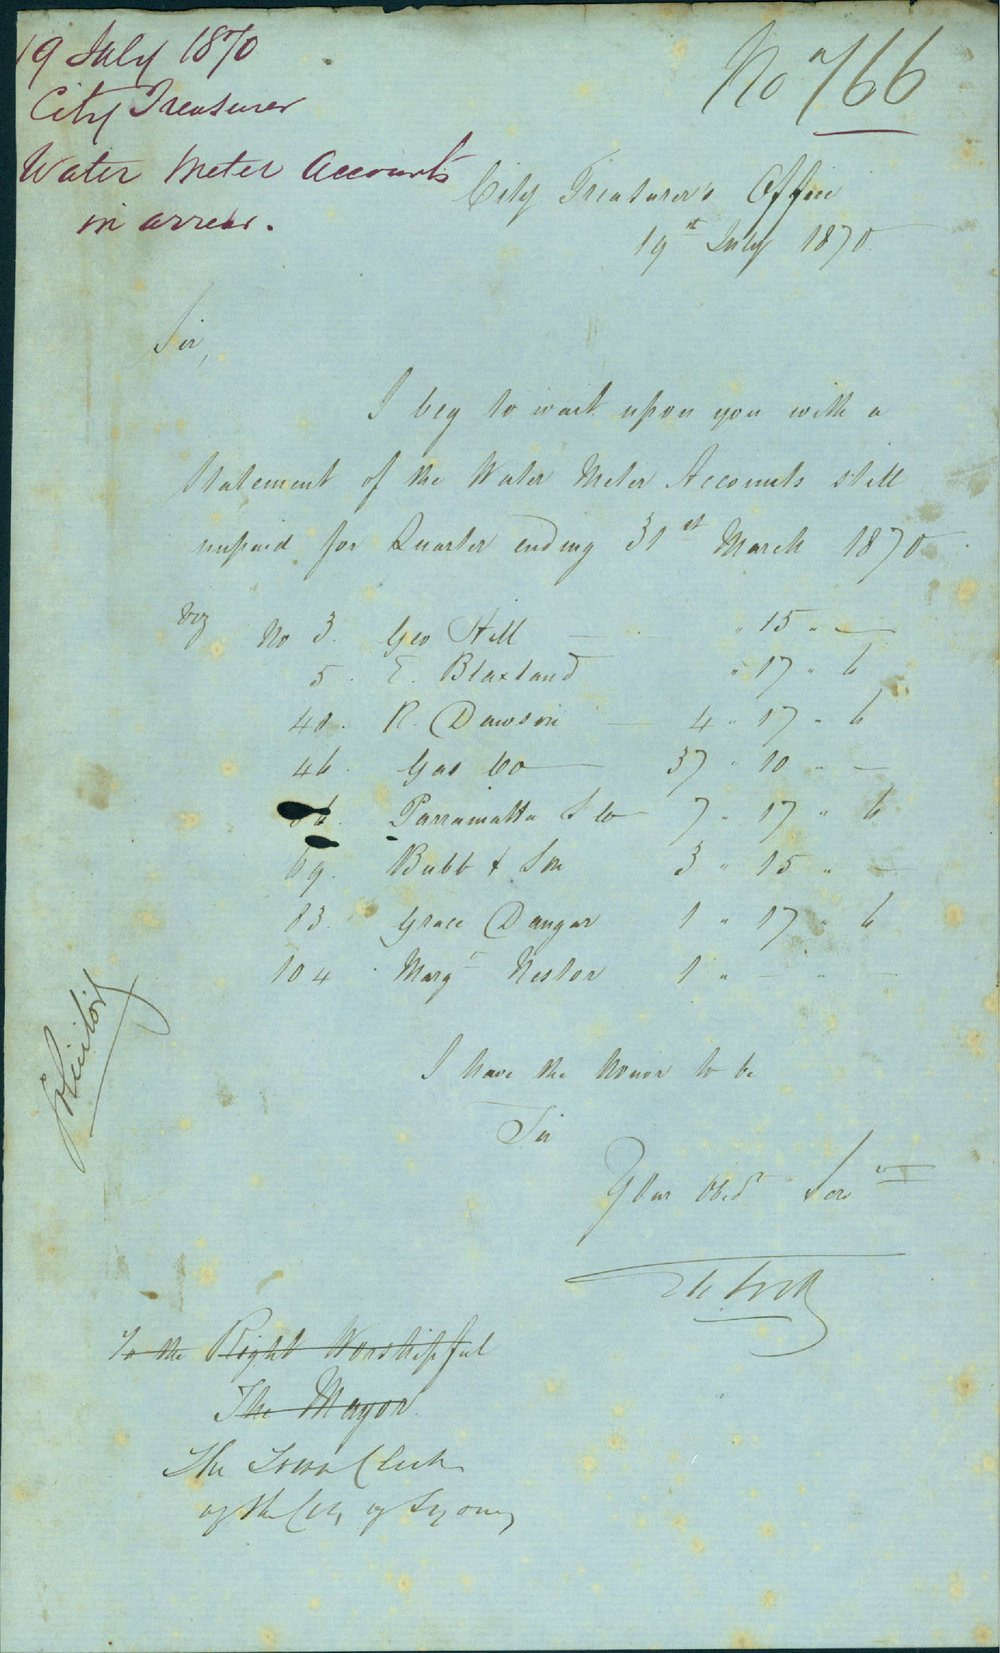 19 July 1870
City Treasurer
Water Meter Accounts
in arrear.
No 766
City Treasurer's Office
19st July 1870
Sir,
I beg to wait upon you with a
Statement of the Water Meter Accounts still
unpaid for Quarter ending 31st March 1870
viz No 3. Geo Hill — " 15 " —
5. E. Blaxland " 17 " 6
40. R. Dawson — 4 " 17 " 6
46. Gas Co — 37 " 10 " —
6. Parramatta S Co 7 " 17 " 6
69. Bubb & Son 3 " 15 " —
83. Grace Dangar 1 " 17 " 6
104. Margt Nestor 1 " — " —
Solicitor
I have the honor to be
Sir
Your obed Servt
To the Right Worshipful
The Mayor
The Town Clerk
of the City of Sydney